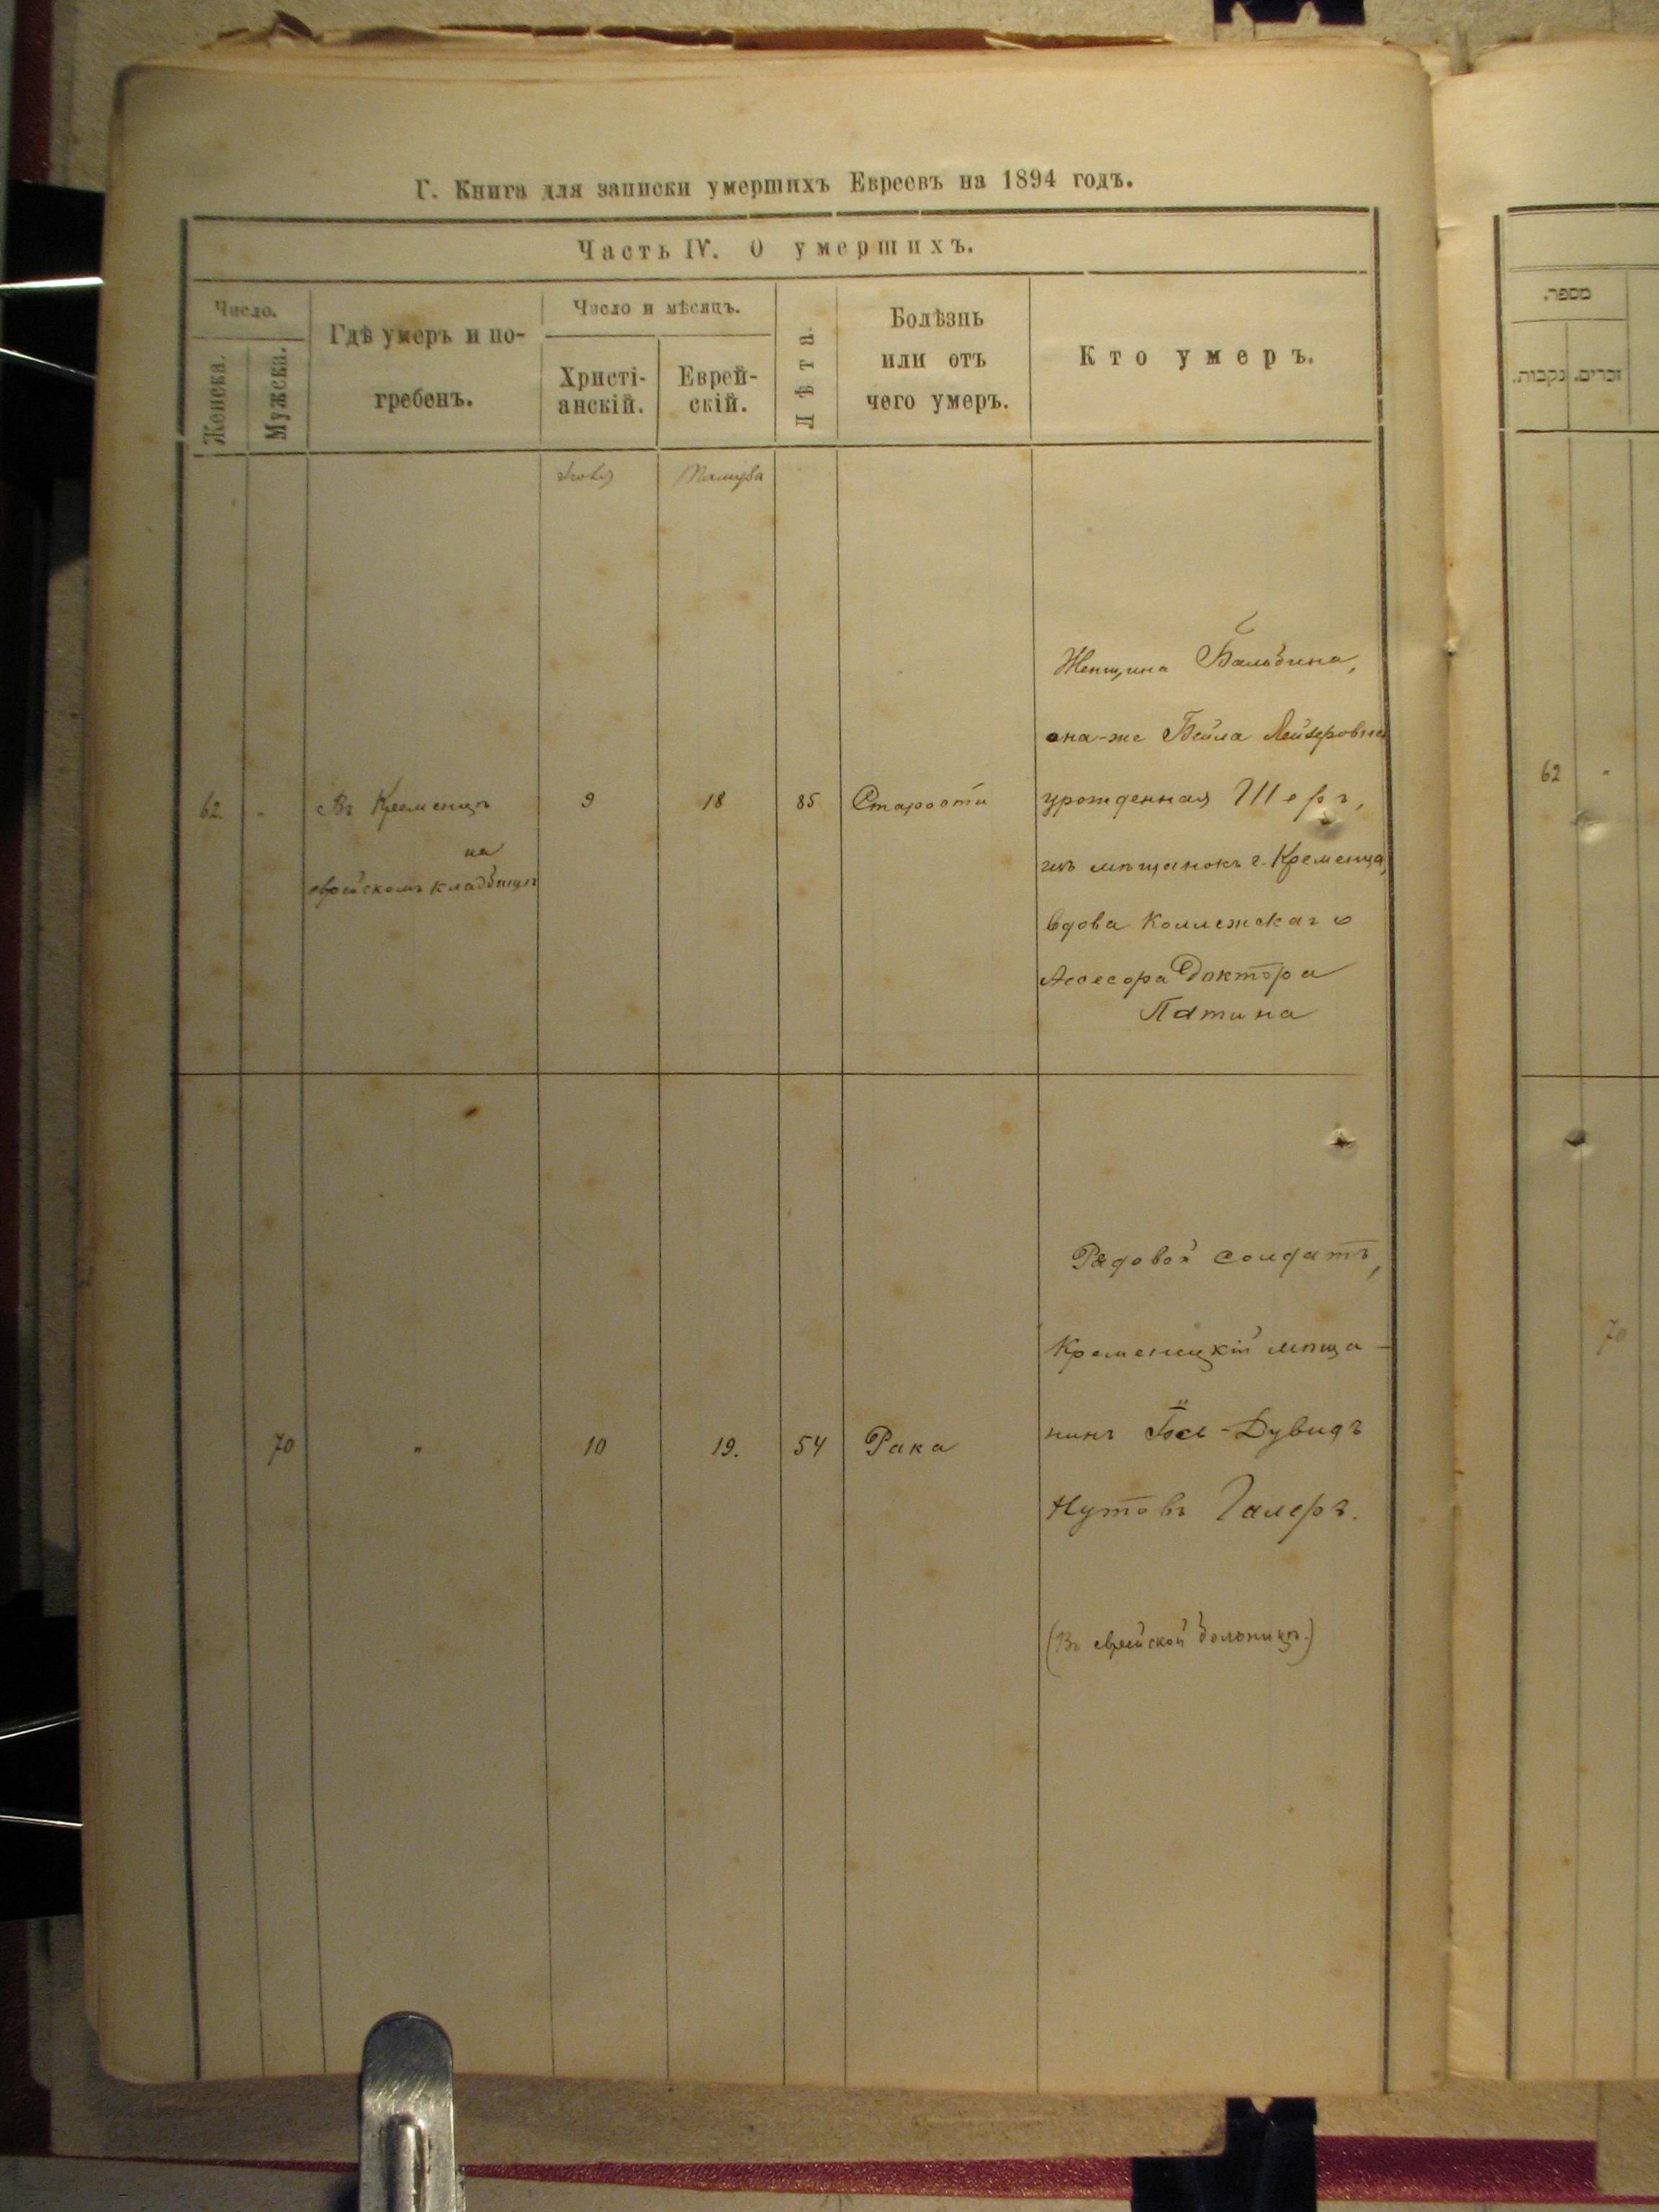 Г. Книга для записки умершихъ Евреевъ на 1894 годъ.
Часть IV. О умершихъ.
Число.
Женска.
Мужска.
Гдѣ умеръ и по-
гребенъ.
Число и мѣсяцъ.
Христі-
анскій.
Еврей-
скій.
Лѣта.
Болѣзнь
или отъ
чего умеръ.
Кто умеръ.
Тамуза
62.
"
Въ Кременцѣ
на
еврейскомъ кладбищѣ
9
18
85
Старости
Женщина Бальбина,
она-же Бейла Лейзеровна
урожденная Шеръ,
изъ мѣщанокъ г. Кременца,
вдова Коллежскаго
Асесора Доктора
70
"
10
19.
54
Рака
Рядовой солдатъ,
Кременецкій мѣща-
нинъ Іось-Дувидъ
Нутовъ Галеръ.
(Въ еврейской больницѣ.)
מספר.
נקבות.
זכרים.
62
"
70